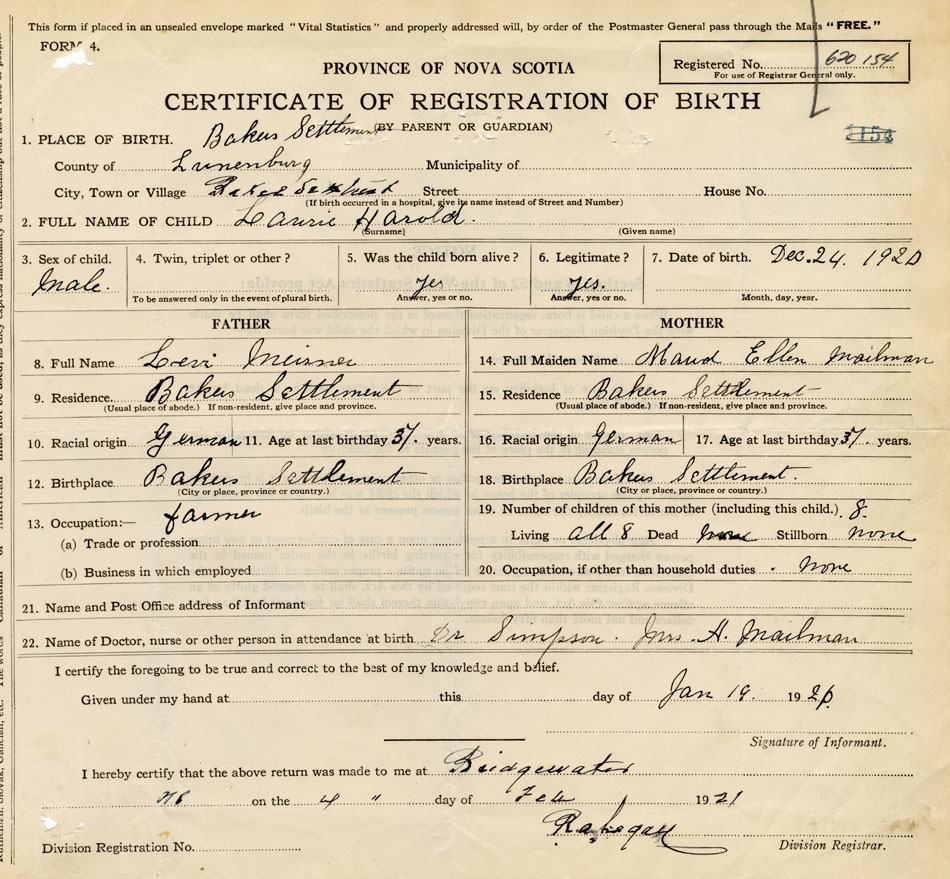 This form if placed in an unsealed envelope marked "Vital Statistics" and properly addressed will, by order of the Postmaster General pass through the Mails "FREE."
FORM 4.
Registered No. 620 154
For use of Registrar General only.
PROVINCE OF NOVA SCOTIA
CERTIFICATE OF REGISTRATION OF BIRTH
(BY PARENT OR GUARDIAN)
154
1. PLACE OF BIRTH. Bakers Settlement
County of Lunenburg Municipality of
City, Town or Village Street House No.
(If birth occurred in a hospital, give its name instead of Street and Number)
2. FULL NAME OF CHILD Laurie Harold.
(Surname) (Given name)
3. Sex of child. 4. Twin, triplet or other? 5. Was the child born alive? 6. Legitimate? 7. Date of birth. Dec. 24. 1920
Male. yes yes.
To be answered only in the event of plural birth. Answer, yes or no. Answer, yes or no. Month, day, year.
FATHER
8. Full Name Levi Meisner
9. Residence. Bakers Settlement
(Usual place of abode.) If non-resident, give place and province.
10. Racial origin German 11. Age at last birthday 37. years.
12. Birthplace Bakers Settlement
(City or place, province or country.)
13. Occupation:— farmer
(a) Trade or profession
(b) Business in which employed
MOTHER
14. Full Maiden Name Maud Ellen Mailman
15. Residence Bakers Settlement
(Usual place of abode.) If non-resident, give place and province.
16. Racial origin German 17. Age at last birthday 37. years.
18. Birthplace Bakers Settlement.
(City or place, province or country.)
19. Number of children of this mother (including this child.) 8.
Living all 8 Dead none Stillborn none
20. Occupation, if other than household duties. none
21. Name and Post Office address of Informant
22. Name of Doctor, nurse or other person in attendance at birth Dr Simpson. Mrs. A. Mailman
I certify the foregoing to be true and correct to the best of my knowledge and belief.
Given under my hand at this day of Jan 19. 19
Signature of Informant.
I hereby certify that the above return was made to me at Bridgewater
NS on the 4 " day of Feb 1921
Division Registration No. Division Registrar.